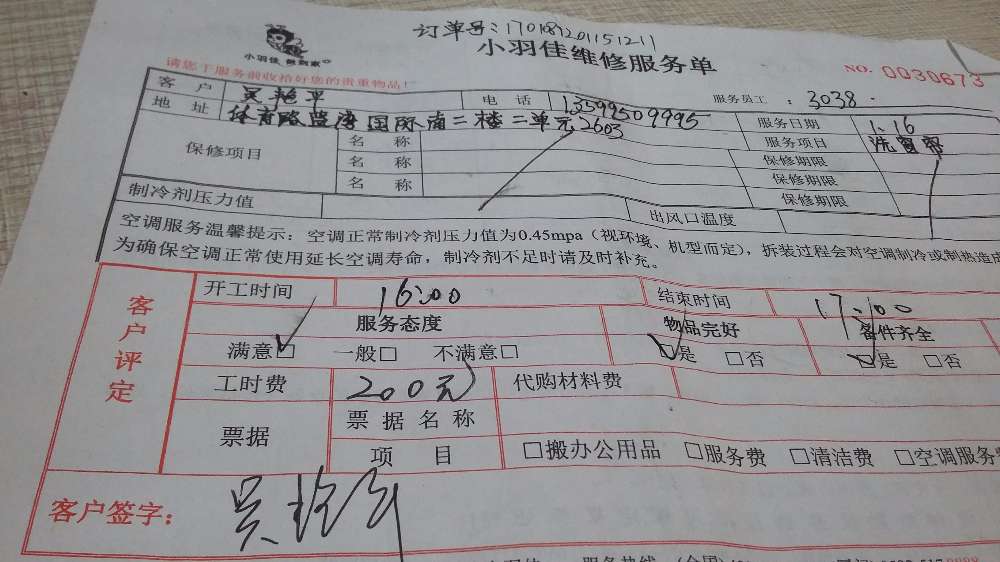 订单号:170187201151211
小羽佳 做到家
小羽佳维修服务单
NO. 0030673
请您于服务前收拾好您的贵重物品!
服务员工 : 3038.
客 户 吴艳平 电 话 13599509995 服务日期 1.16
地 址 体育路蓝湾国际南二楼二单元2603 服务项目 洗窗帘
保修项目 名 称 保修期限
名 称 保修期限
名 称 保修期限
制冷剂压力值 出风口温度
空调服务温馨提示:空调正常制冷剂压力值为0.45mpa(视环境、机型而定),拆装过程会对空调制冷或制热造成
为确保空调正常使用延长空调寿命,制冷剂不足时请及时补充。
客户评定
开工时间 16:00 结束时间 17:00
服务态度 物品完好 备件齐全
满意☑ 一般□ 不满意□ ☑是 □否 ☑是 □否
工时费 200元 代购材料费
票据 票据名称
项 目 □搬办公用品 □服务费 □清洁费 □空调服务费
客户签字: 吴艳平